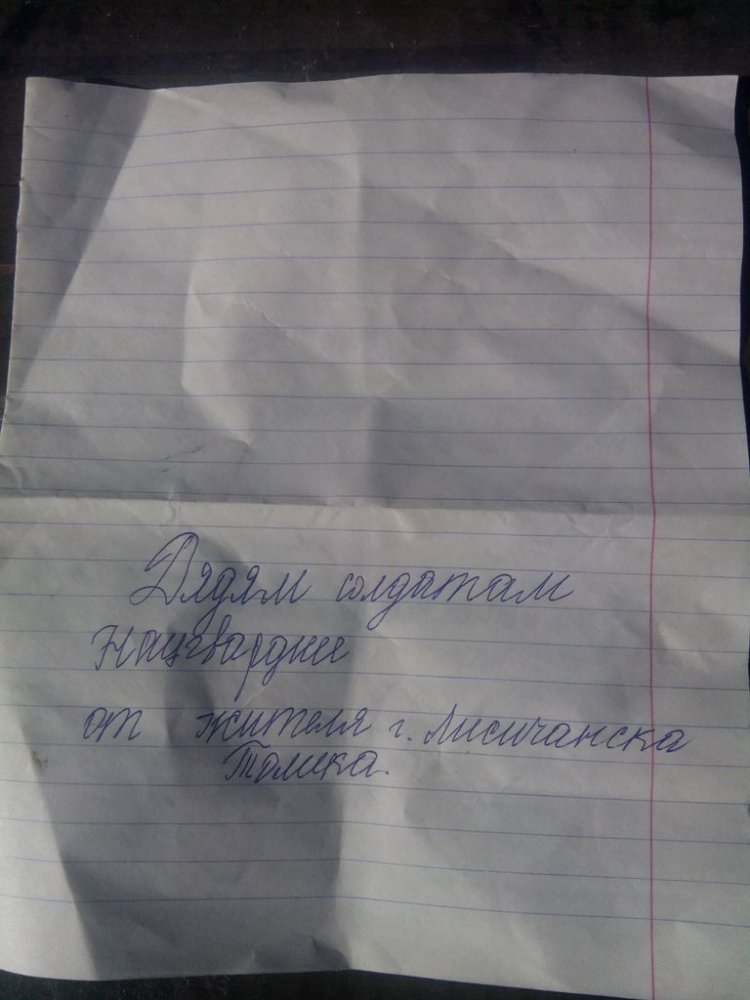 Дядям солдатам
Нацгвардии
от жителя г. Лисичанска
Толика.